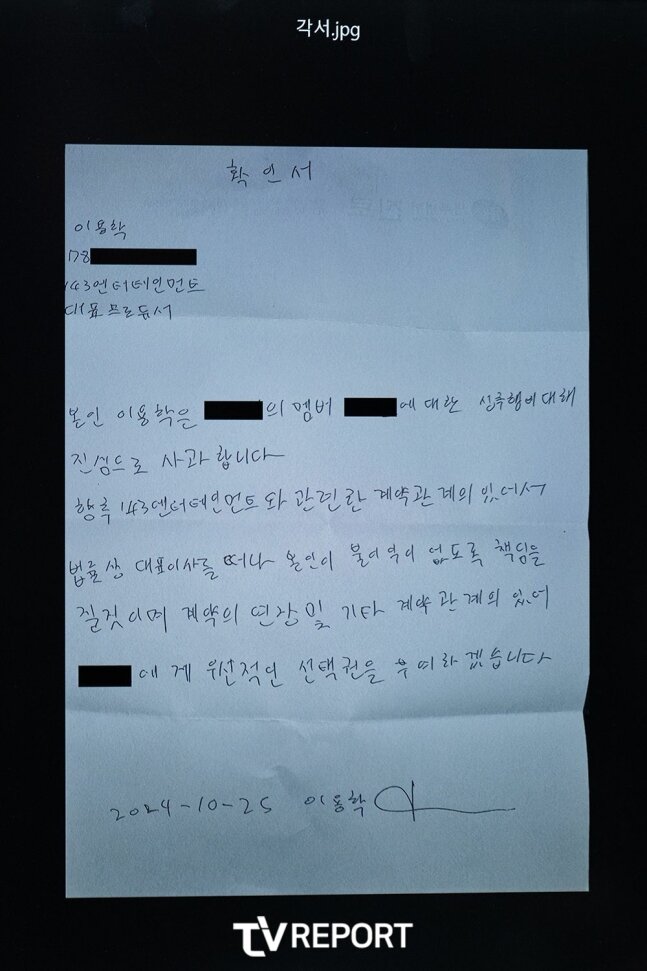 각서.jpg
확인서
이용학
178
143엔터테인먼트
대표프로듀서
본인 이용학은 의 멤버 에 대한 성추행비대해
진심으로 사과합니다
향후 143엔터테인먼트와 관련한 계약관계의 있어서
법률상 대표이사를 떠나 본인이 불이익이 없도록 책임을
질것이며 계약의 연장 및 기타 계약관계의 있어
에게 우선적인 선택권을 부여하겠습니다
2024-10-25 이용학
TV REPORT